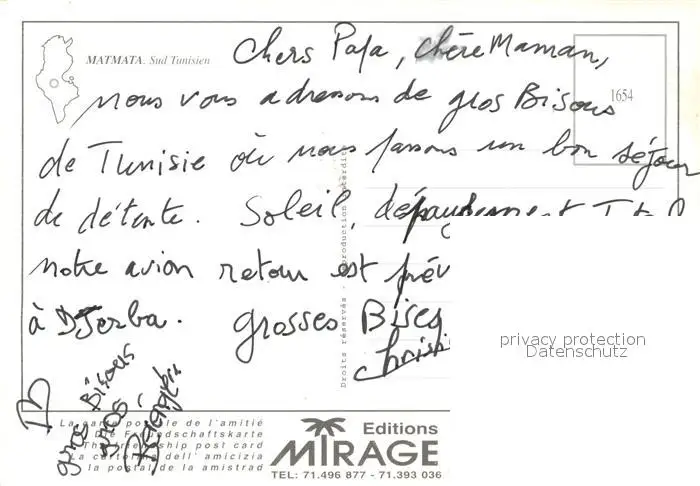 MATMATA. Sud Tunisien
1654
Chers Papa, chère Maman,
nous vous adressons de gros Bisous
de Tunisie où nous passons un bon séjour
de détente. Soleil, dépaysement
notre avion retour est prév
à DJerba. grosses Bises
Christi
gros Bisous
gros
Droits réservés - Reproduction interdite
privacy protection
Datenschutz
La carte postale de l'amitié
Die Freundschaftskarte
The friendship post card
La cartolina dell' amicizia
la postal de la amistrad
Editions
MIRAGE
TEL: 71.496 877 - 71.393 036